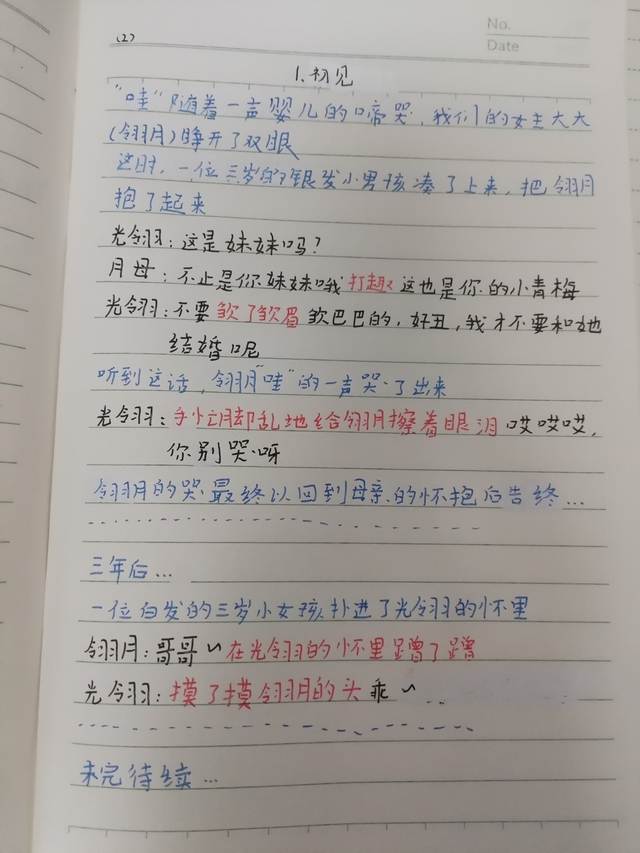 No.
Date
(2)
1.初见
“哇”随着一声婴儿的啼哭，我们的女主大大
(翎月)睁开了双眼
这时，一位三岁的银发小男孩凑了上来，把翎月
抱了起来
光翎：这是妹妹吗？
月母：不止是你妹妹哦 打趣 这也是你的小青梅
光翎：不要 皱了皱眉 皱巴巴的，好丑，我才不要和她
结婚呢
听到这话，翎月“哇”的一声哭了出来
光翎：手忙脚乱地给翎月擦着眼泪 哎哎哎，
你别哭呀
翎月的哭最终以回到母亲的怀抱后告终…
三年后…
一位白发的三岁小女孩扑进了光翎的怀里
翎月：哥哥~在光翎的怀里蹭了蹭
光翎：摸了摸翎月的头 乖~
未完待续…